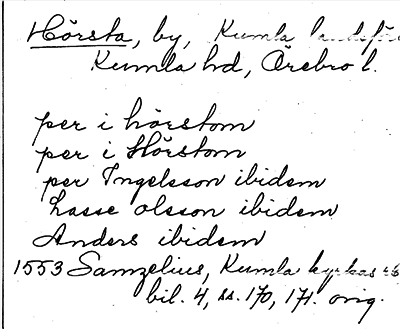 Hörsta, by, Kumla
Kumla hd, Örebro l.
per i hörstom
per i Hörstom
per Ingelsson ibidem
Lasse olsson ibidem
Anders ibidem
1553 Samzelius, Kumla kyrkas
bil. 4, ss. 170, 171. orig.